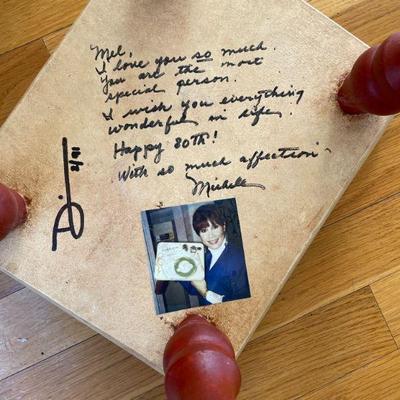 Mel,
I love you so much.
You are the most
special person.
I wish you everything
wonderful in life.
Happy 80th!
With so much affection
Michele
2/91